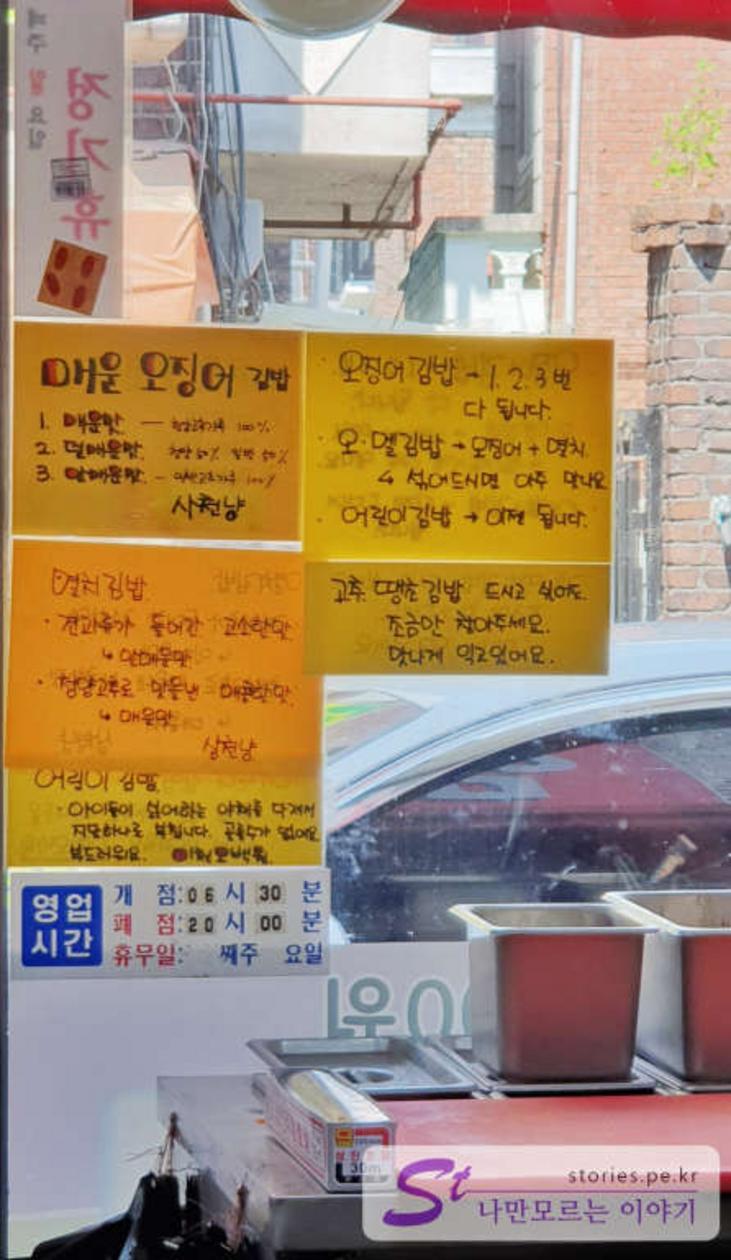 정기휴
매운 오징어 김밥
1. 매운맛 — 청양고추가루 100%
2. 덜매운맛 청양 50% 일반 50%
3. 안매운맛 — 100%
사천냥
· 오징어김밥 → 1. 2. 3 번
다 됩니다.
· 오·멸김밥 → 오징어 + 멸치.
↳ 섞어드시면 아주 맛나요
· 어린이김밥 → 이천 됩니다.
멸치김밥
· 견과류가 들어간 고소한맛
↳ 안매운맛
· 청양고추로 만들낸 매콤한맛.
↳ 매운맛
삼천냥
고추. 땡초김밥 드시고 싶어도.
조금만 참아주세요.
맛나게 익고있어요.
어린이 김밥
· 아이들이 싫어하는 야채를 다져서
지단하나로 부칩니다.
부드러워요. 이천오백냥
영업시간
개 점: 06 시 30 분
폐 점: 20 시 00 분
휴무일: 째주 요일
00원
30m
St
stories.pe.kr
나만모르는 이야기